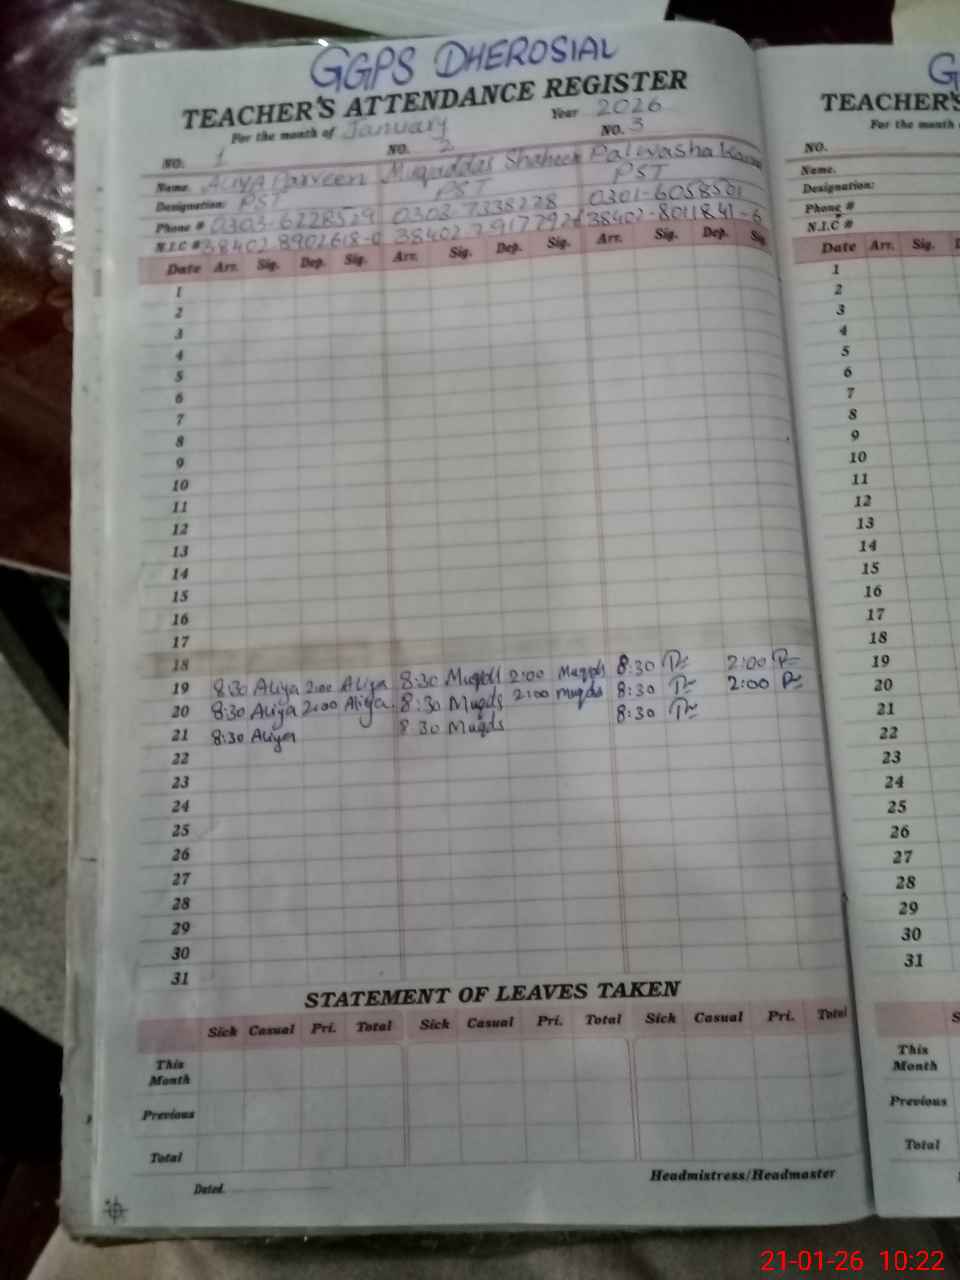 GGPS DHEROSIAL
TEACHER'S ATTENDANCE REGISTER
For the month of January Year 2026
NO. 1 NO. 2 NO. 3
Name. ALIYA Parveen Muqaddas Shaheen Palwasha
Designation: PST PST PST
Phone # 0303-6228529 0303-7338228 0301-6058501
N.I.C # 38402 8902618-0 38402 38402-8011841-6
Date Arr. Sig. Dep. Sig. Arr. Sig. Dep. Sig. Arr. Sig. Dep. Sig.
1
2
3
4
5
6
7
8
9
10
11
12
13
14
15
16
17
18
19 8:30 Aliya 2:00 Aliya 8:30 Muqds 2:00 Muqds 8:30 2:00
20 8:30 Aliya 2:00 Aliya 8:30 Muqds 2:00 Muqds 8:30 2:00
21 8:30 Aliya 8:30 Muqds 8:30
22
23
24
25
26
27
28
29
30
31
STATEMENT OF LEAVES TAKEN
Sick Casual Pri. Total Sick Casual Pri. Total Sick Casual Pri. Total
This
Month
Previous
Total
Dated.
Headmistress/Headmaster
G
TEACHER'S
For the month
NO.
Name.
Designation:
Phone #
N.I.C #
Date Arr. Sig.
1
2
3
4
5
6
7
8
9
10
11
12
13
14
15
16
17
18
19
20
21
22
23
24
25
26
27
28
29
30
31
This
Month
Previous
Total
21-01-26 10:22